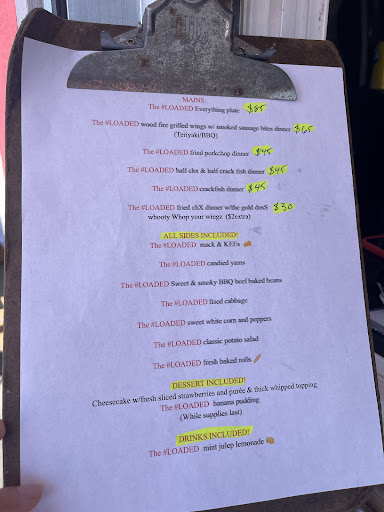 MAINS:
The #LOADED Everything plate $85
The #LOADED wood fire grilled wings w/ smoked sausage bites dinner $65
(Teriyaki/BBQ)
The #LOADED fried porkchop dinner $45
The #LOADED half chx & half crack fish dinner $45
The #LOADED crackfish dinner $45
The #LOADED fried chX dinner w/the gold dusS $30
whouty Whop your wingz ($2extra)
ALL SIDES INCLUDED!
The #LOADED mack & KEEs 🧀
The #LOADED candied yams
The #LOADED Sweet & smoky BBQ beef baked beans
The #LOADED fried cabbage
The #LOADED sweet white corn and peppers
The #LOADED classic potato salad
The #LOADED fresh baked rolls 🥖
DESSERT INCLUDED!
Cheesecake w/fresh sliced strawberries and purée & thick whipped topping
The #LOADED banana pudding
(While supplies last)
DRINKS INCLUDED!
The #LOADED mint julep lemonade 🍋